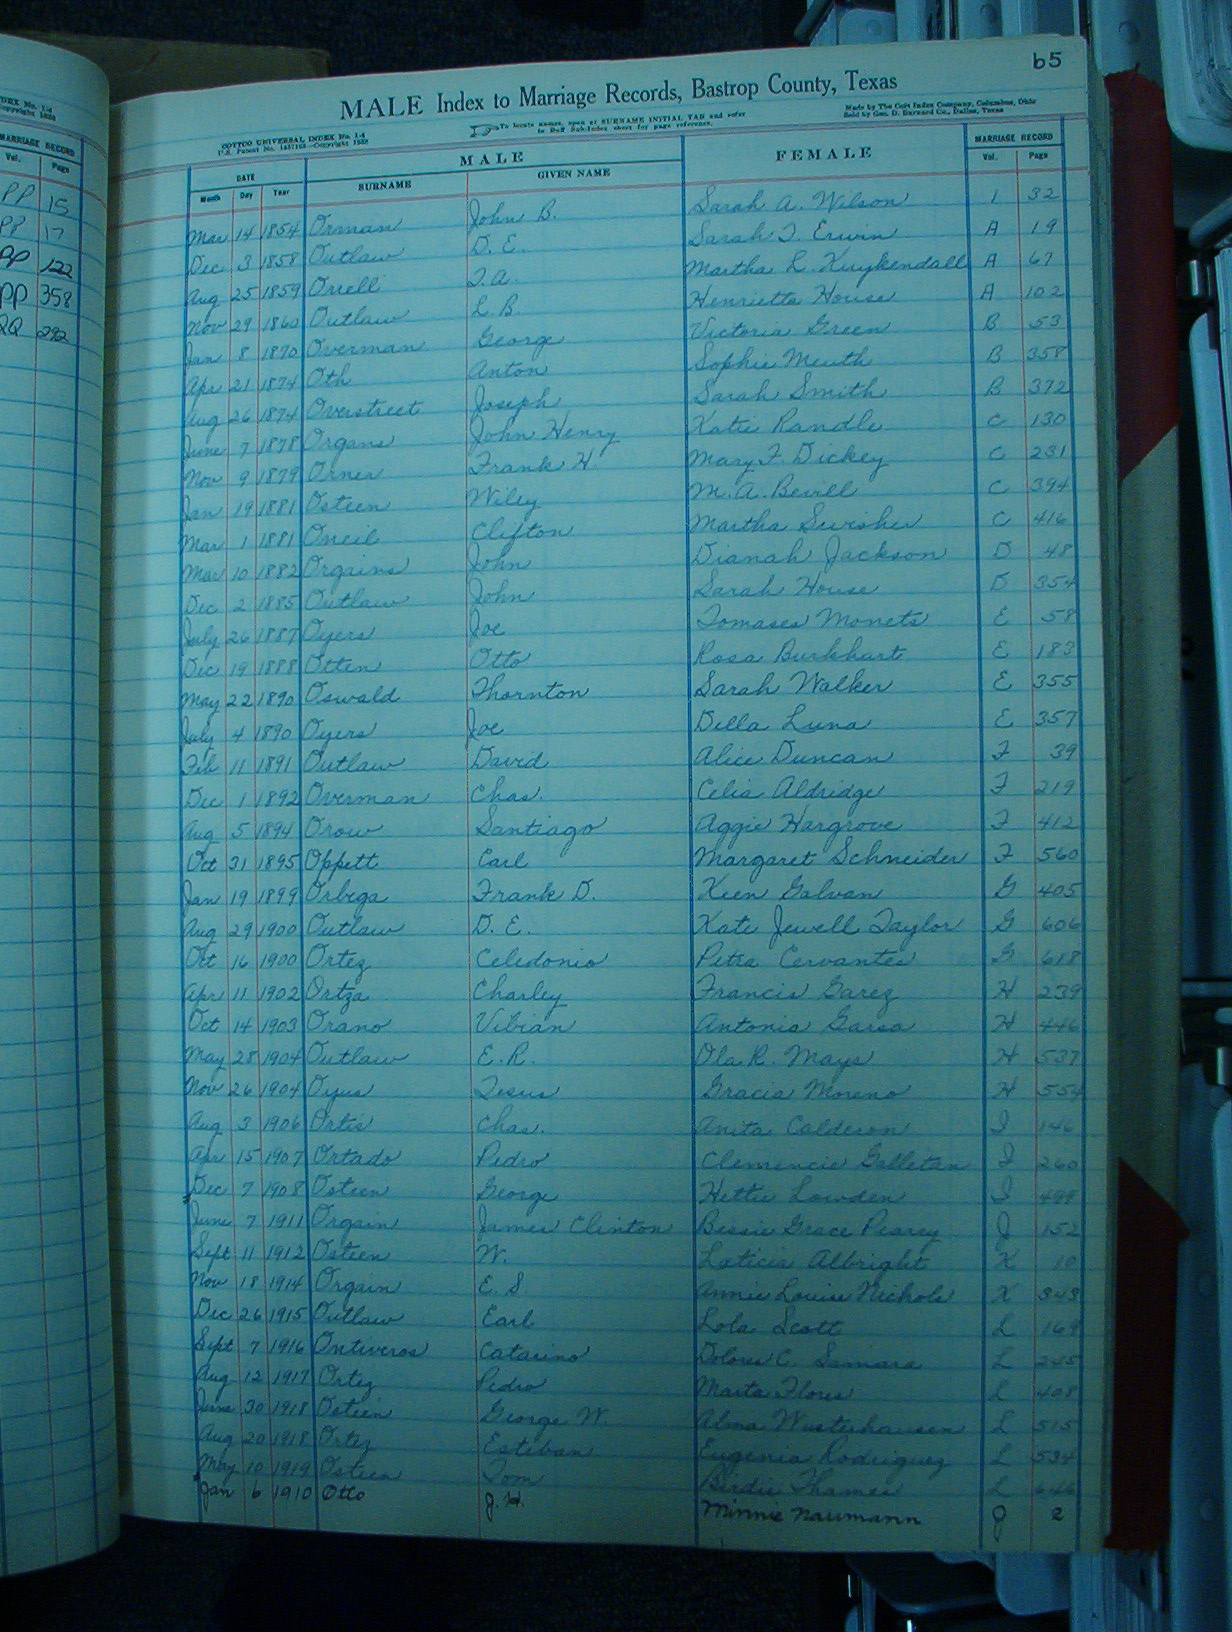 65
MALE Index to Marriage Records, Bastrop County, Texas
COTTCO UNIVERSAL INDEX No. 1-4
To locate names, open at SURNAME INITIAL TAB and refer
to Buff Sub-Index sheet for page reference.
Made by The Cott Index Company, Columbus, Ohio
Sold by Geo. D. Barnard Co., Dallas, Texas
MARRIAGE RECORD
Vol. Page
PP 15
PP 17
PP 122
PP 358
QQ 292
DATE MALE FEMALE MARRIAGE RECORD
Month Day Year SURNAME GIVEN NAME Vol. Page
Mar 14 1854 Orman John B. Sarah A. Wilson 1 32
Dec 3 1858 Outlaw D. E. Sarah T. Erwin A 19
Aug 25 1859 Orrell T. A. Martha L. Kuykendall A 67
Nov 29 1860 Outlaw L. B. Henrietta House A 102
Jan 8 1870 Overman George Victoria Green B 53
Apr 21 1874 Oth Anton Sophie Meuth B 358
Aug 26 1874 Overstreet Joseph Sarah Smith B 372
June 7 1878 Organs John Henry Katie Randle C 130
Nov 9 1879 Orner Frank H. Mary F Dickey C 231
Jan 19 1881 Osteen Wiley M. A. Bevill C 394
Mar 1 1881 Oneil Clifton Martha Swisher C 416
Mar 10 1882 Orgains John Dianah Jackson D 48
Dec 2 1885 Outlaw John Sarah House D 354
July 26 1887 Oyers Joe Tomases Monets E 58
Dec 19 1888 Otten Otto Rosa Burkhart E 183
May 22 1890 Oswald Thornton Sarah Walker E 355
July 4 1890 Oyers Joe Della Luna E 357
Feb 11 1891 Outlaw David Alice Duncan F 39
Dec 1 1892 Overman Chas. Celia Aldridge F 219
Aug 5 1894 Orow Santiago Aggie Hargrove F 412
Oct 31 1895 Oppett Carl Margaret Schneider F 560
Jan 19 1899 Orbega Frank D. Keen Galvan G 405
Aug 29 1900 Outlaw D. E. Kate Jewell Taylor G 606
Oct 16 1900 Ortez Celedonio Petra Cervantes G 618
Apr 11 1902 Ortza Charley Francis Garez H 239
Oct 14 1903 Orano Vibian Antonia Garsa H 446
May 28 1904 Outlaw E. R. Ola R. Mays H 537
Nov 26 1904 Oyus Jesus Gracia Moreno H 554
Aug 3 1906 Ortis Chas. Anita Calderon I 146
Apr 15 1907 Ortado Pedro Clemencie Galletan I 260
Dec 7 1908 Osteen George Hettie Lowden I 499
June 7 1911 Orgain James Clinton Bessie Grace Pearcy J 152
Sept 11 1912 Osteen W. Laticia Albright K 10
Nov 18 1914 Orgain E S Annie Louise Nichols K 343
Dec 26 1915 Outlaw Earl Lola Scott L 169
Sept 7 1916 Ontiveros Catarino Dolores C. Samara L 245
Aug 12 1917 Ortez Pedro Marta Flores L 408
June 30 1918 Osteen George W. Alma Wusterhausen L 515
Aug 20 1918 Ortez Esteban Eugenia Rodriguez L 534
May 10 1919 Osteen Tom Birdie Thames L 646
Jan 6 1910 Otto J. H. Minnie Naumann J 2